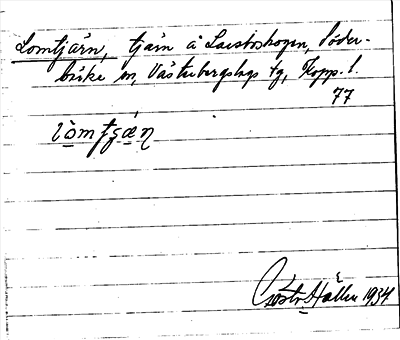 Lomtjärn, tjärn å Laisboskogen, Söder-
bärke sn, Västerbergslags tg, Kopp. l.
77
lòmtʃæ̀ɳ
Gösta Hallin 1934.